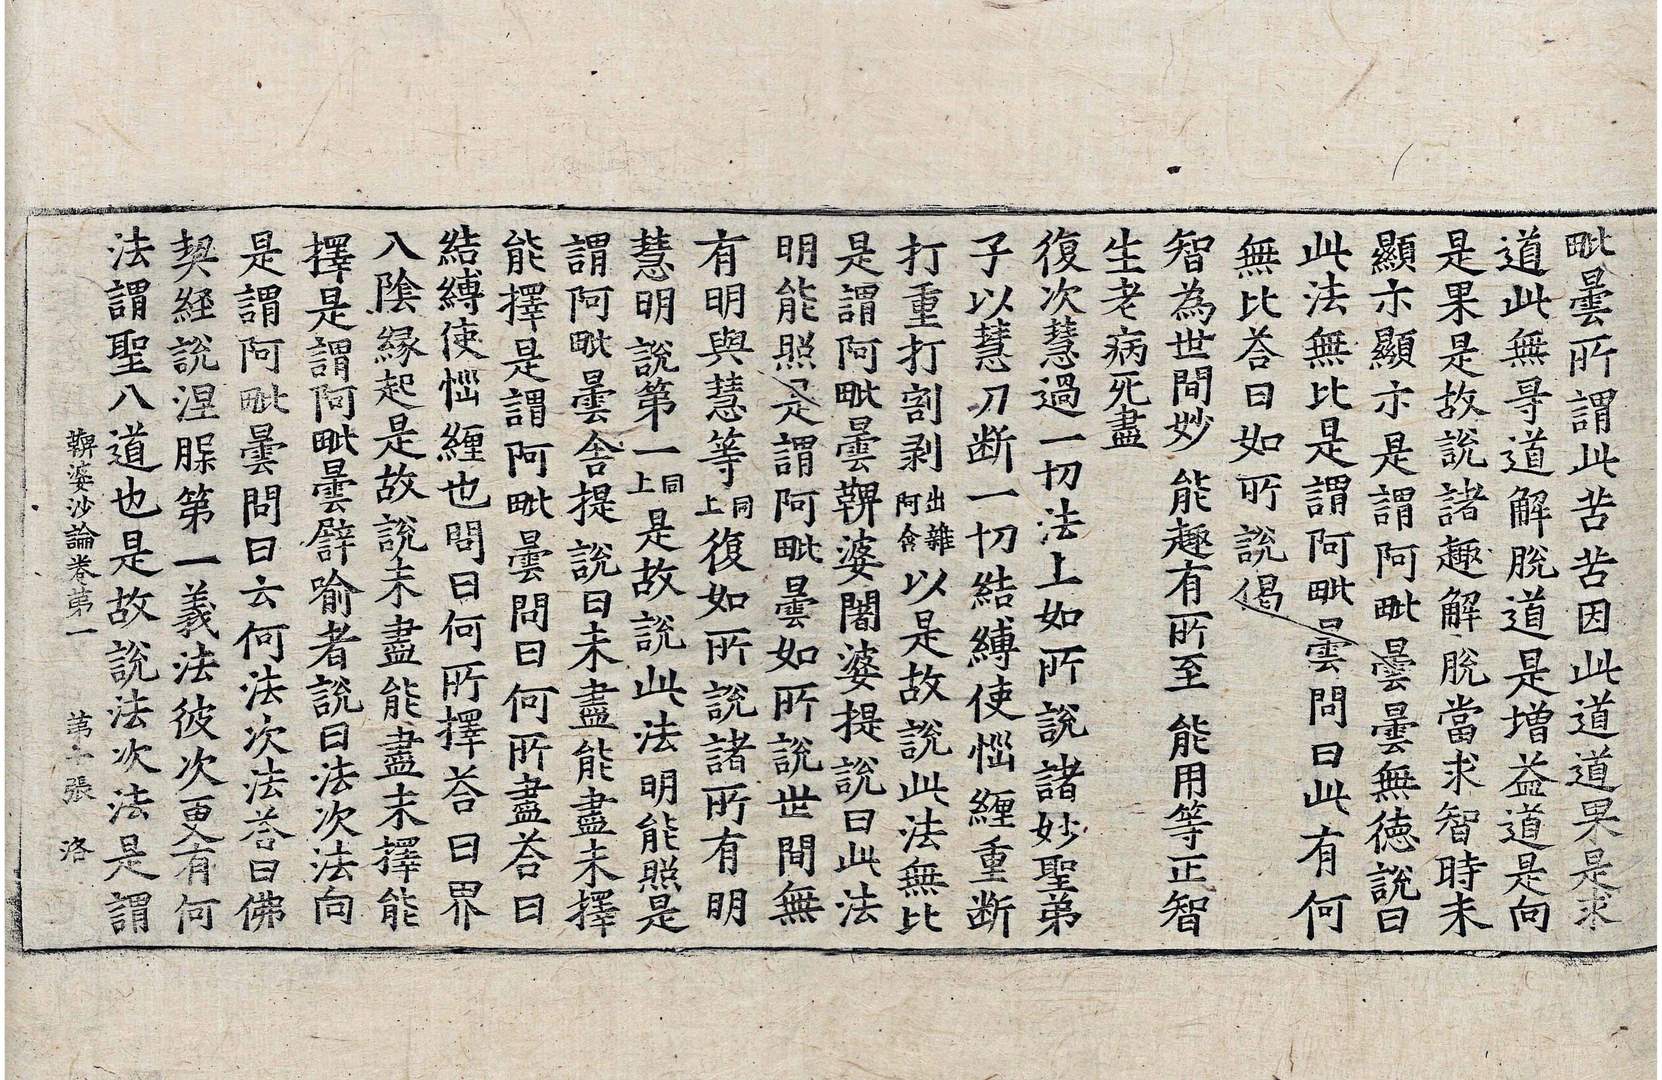 毗曇所謂此苦苦因此道道果是求
道此無㝵道解脫道是增益道是向
是果是故說諸趣解脫當求智時未
顯示顯示是謂阿毗曇曇無德說曰
此法無比是謂阿毗曇問曰此有何
無比荅曰如所說偈
智為世間妙 能趣有所至 能用等正智
生老病死盡
復次慧過一切法上如所說諸妙聖弟
子以慧刀斷一切結縛使惱纏重斷
打重打割剥出雜阿含以是故說此法無比
是謂阿毗曇鞞婆闍婆提說曰此法
明能照是謂阿毗曇如所說世間無
有明與慧等同上復如所說諸所有明
慧明說第一同上是故說此法明能照是
謂阿毗曇舍提說曰未盡能盡未擇
能擇是謂阿毗曇問曰何所盡荅曰
結縛使惱纏也問曰何所擇荅曰界
入陰縁起是故說未盡能盡未擇能
擇是謂阿毗曇譬喻者說曰法次法向
是謂阿毗曇問曰云何法次法荅曰佛
契經說涅槃第一義法彼次更有何
法謂聖八道也是故說法次法是謂
鞞婆沙論卷第一 第十張 洛